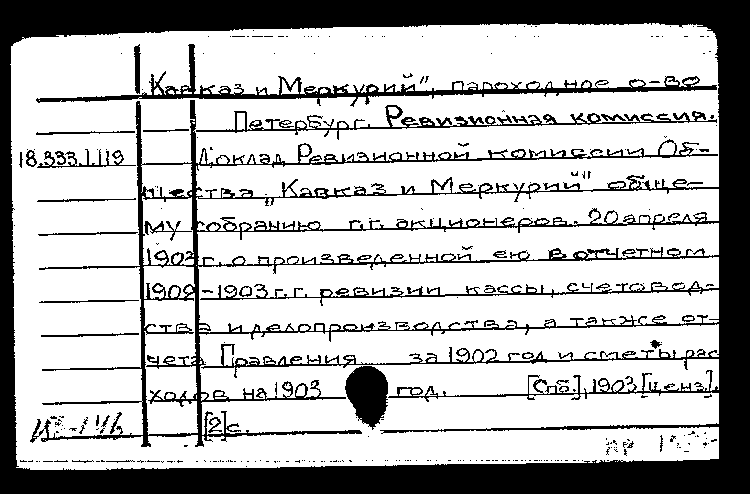 „Кавказ и Меркурий", пароходное о-во
Петербург. Ревизионная комиссия.
18.333.1.119 Доклад Ревизионной комиссии Об-
щества „Кавказ и Меркурий" обще-
му собранию г.г. акционеров 20 апреля
1903 г. о произведенной ею в отчетном
1902-1903 г.г. ревизии кассы, счетовод-
ства и делопроизводства, а также от-
чета Правления за 1902 год и сметы рас
ходов на 1903 год. [Спб.], 1903 [ценз].
[2] с.